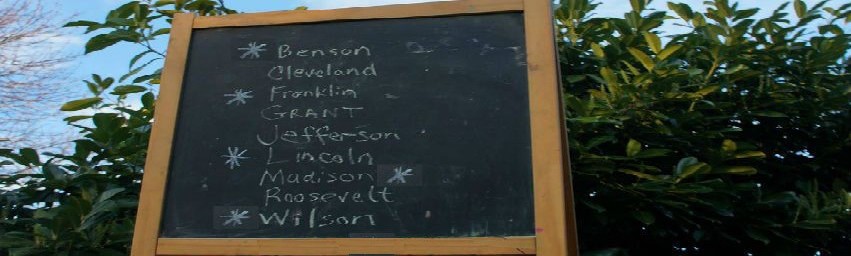 * Benson
Cleveland
* Franklin
GRANT
Jefferson
* Lincoln
Madison *
Roosevelt
* Wilson